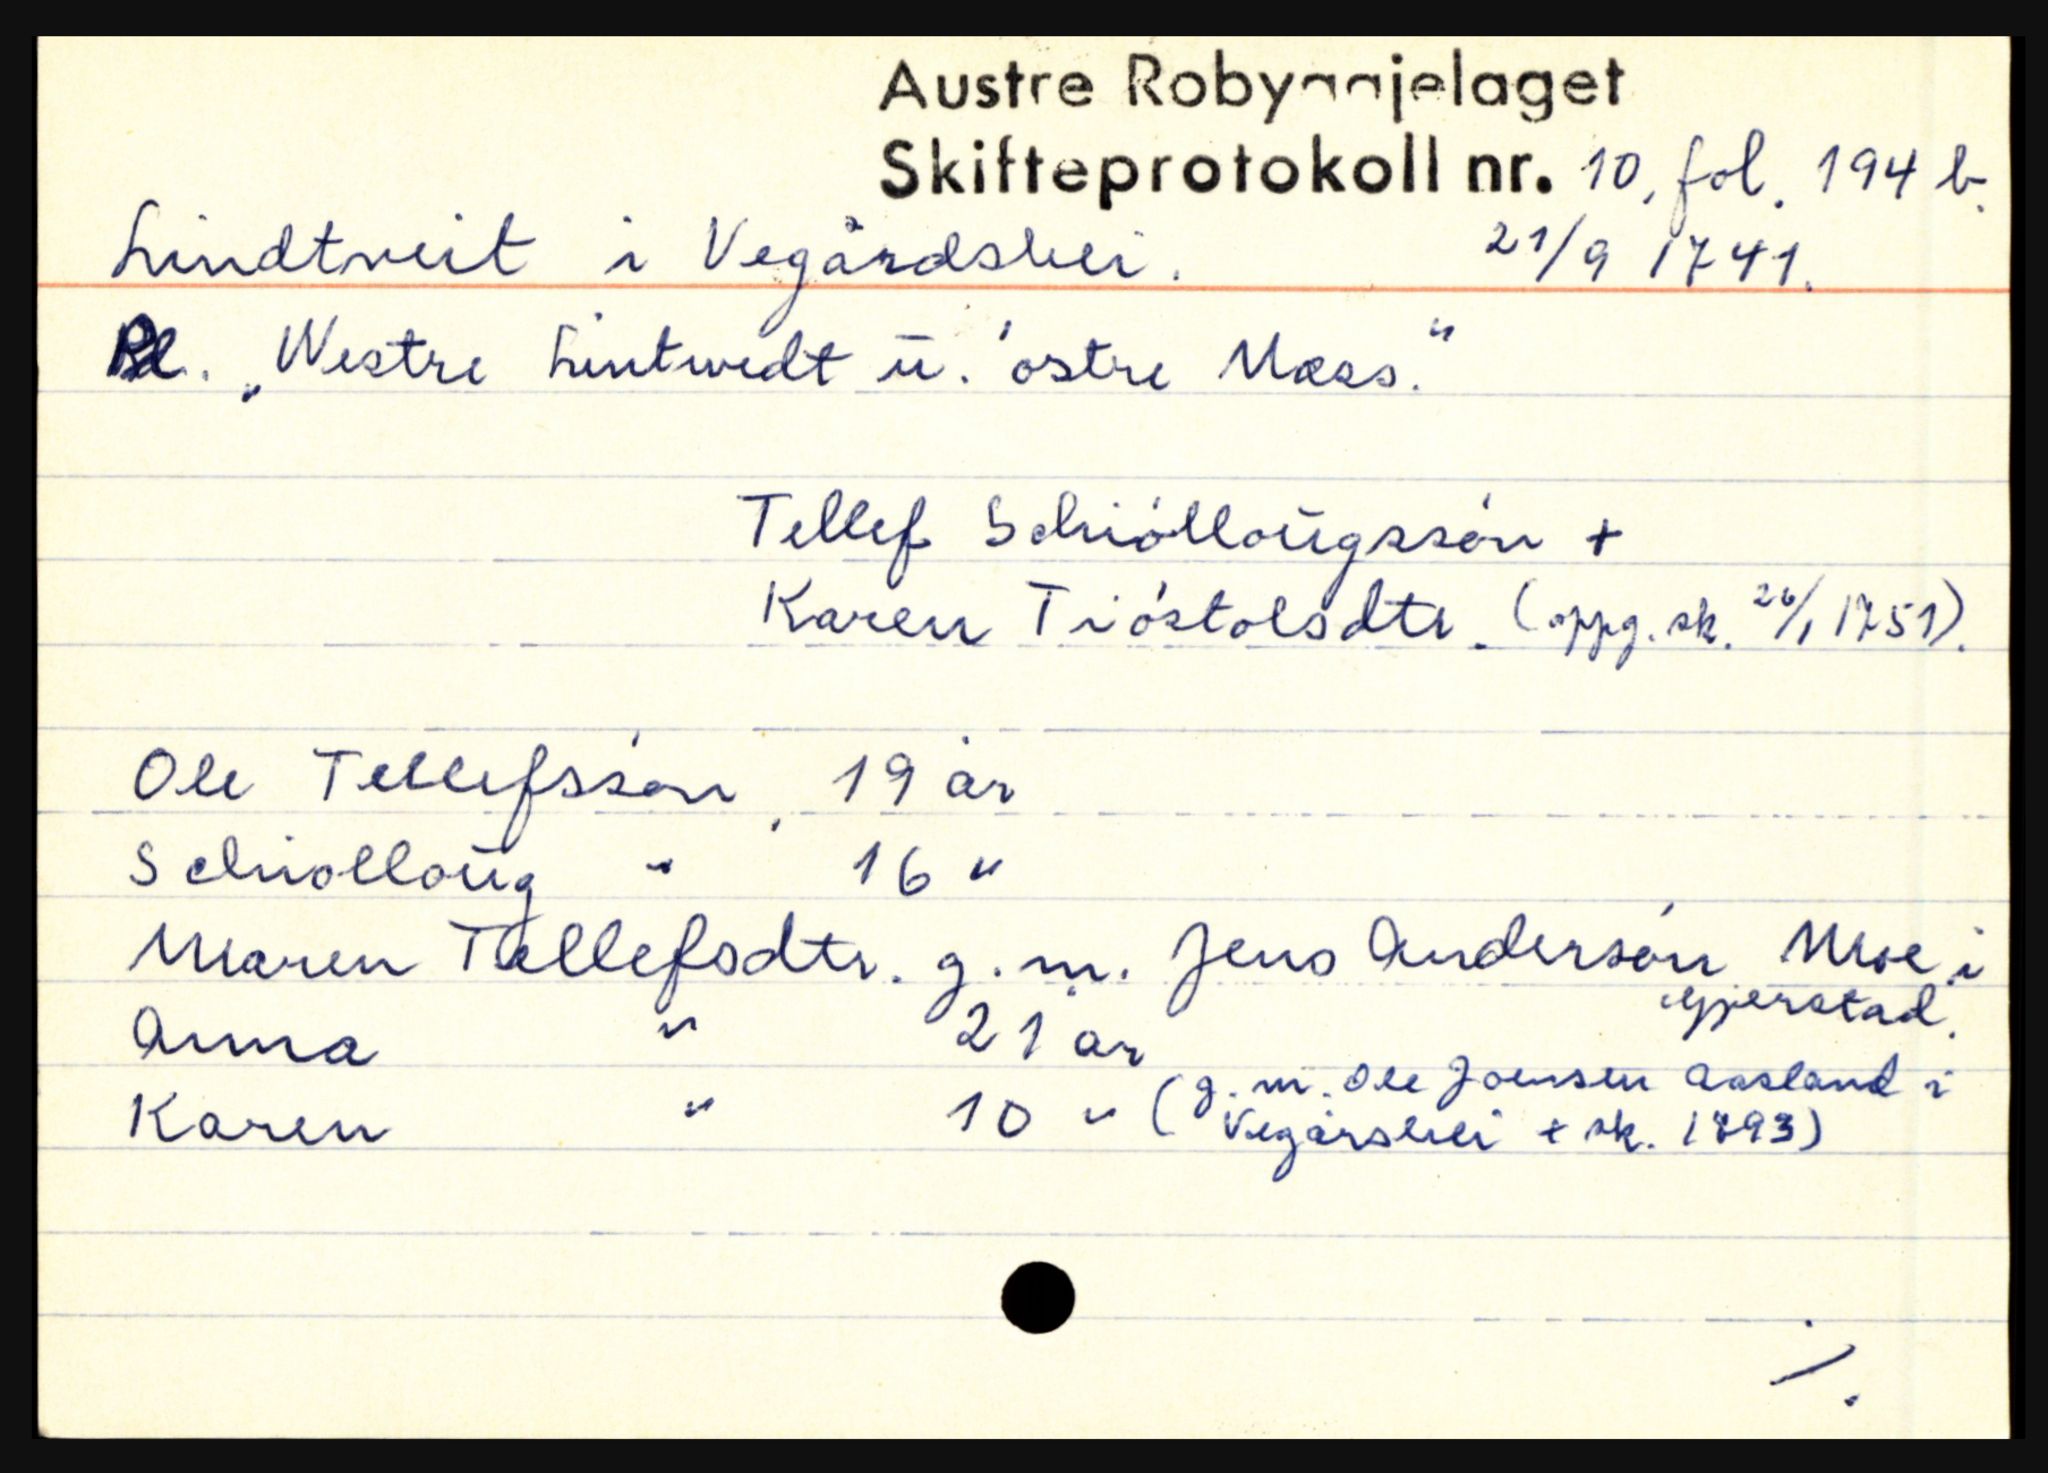 Austre Robyggjelaget
Skifteprotokoll nr. 10, fol. 194 b.
Lindtveit i Vegårdshei. 21/9 1741.
Pl. „Westre Lintwedt ū. óstre Mæss."
Tellef Schiólloügssón +
Karen Tióstolsdtr. (oppg. sk. 26/1 1751).
Ole Tellefssón, 19 år
Schiolloüg " 16 "
Maren Tellefsdtr. g.m. Jens Andersón Moe i
Gjerstad.
Anna " 21 år
Karen " 10 " (g.m. Ole Joensen Aasland i
Vegårshei + sk. 1793)
./.